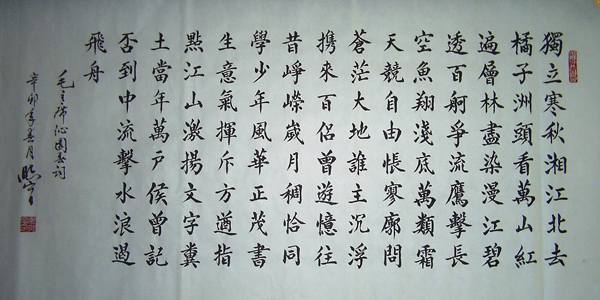 獨立寒秋湘江北去
橘子洲頭看萬山紅
遍層林盡染漫江碧
透百舸爭流鷹擊長
空魚翔淺底萬類霜
天競自由悵寥廓問
蒼茫大地誰主沉浮
携來百侶曾遊憶往
昔崢嶸歲月稠恰同
學少年風華正茂書
生意氣揮斥方遒指
點江山激揚文字糞
土當年萬戶侯曾記
否到中流擊水浪遏
飛舟
毛主席沁園春詞
辛卯年春月